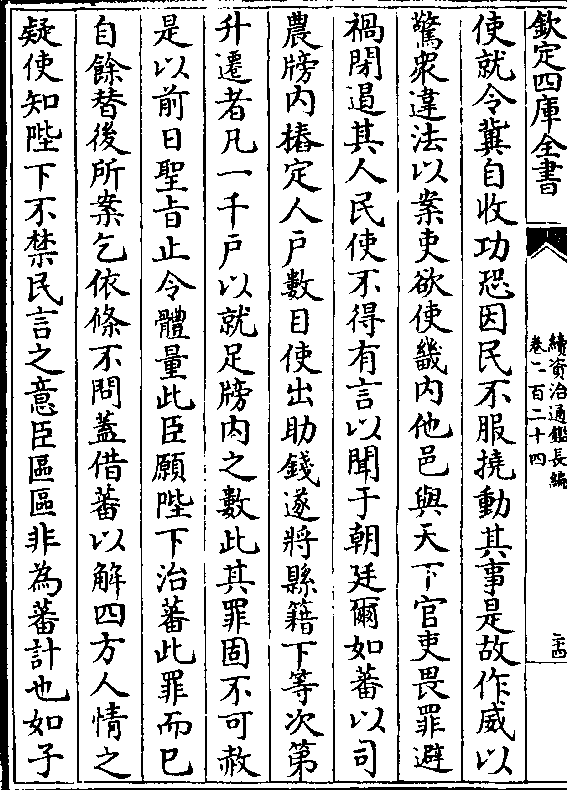 欽定四庫全書
續資治通鑑長編
卷二百二十四
二十四
使就令冀自收功恐因民不服撓動其事是故作威以
驚衆違法以案吏欲使畿内他邑與天下官吏畏罪避
禍閉遏其人民使不得有言以聞于朝廷爾如蕃以司
農牓内樁定人戸數目使出助錢遂將縣籍下等次第
升遷者凡一千戸以就足牓内之數此其罪固不可赦
是以前日聖㫖止令體量此臣願陛下治蕃此罪而已
自餘替後所案乞依條不問蓋借蕃以解四方人情之
疑使知陛下不禁民言之意臣區區非為蕃計也如子